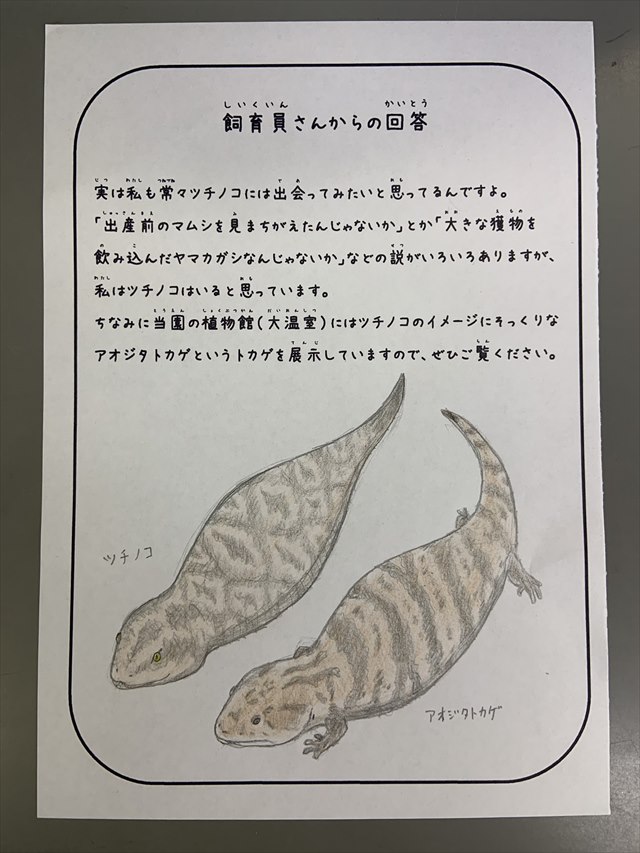 飼育員さんからの回答
実は私も常々ツチノコには出会ってみたいと思ってるんですよ。
「出産前のマムシを見まちがえたんじゃないか」とか「大きな獲物を
飲み込んだヤマカガシなんじゃないか」などの説がいろいろありますが、
私はツチノコはいると思っています。
ちなみに当園の植物館(大温室)にはツチノコのイメージにそっくりな
アオジタトカゲというトカゲを展示していますので、ぜひご覧ください。
ツチノコ
アオジタトカゲ